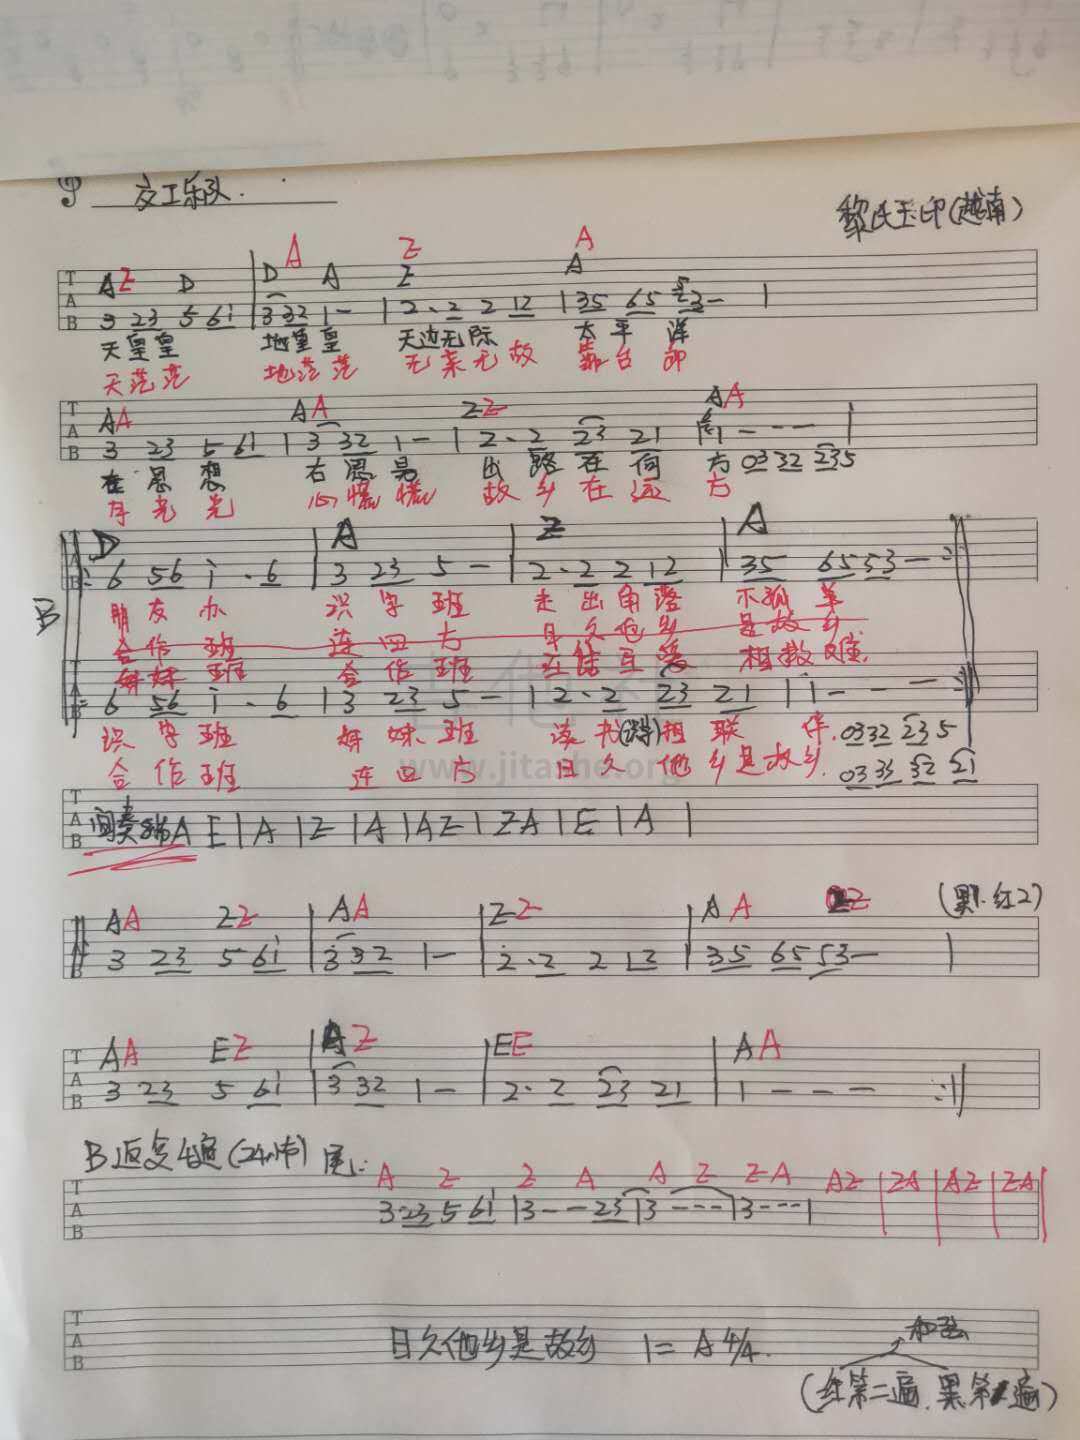 交工乐队.
黎氏玉印(越南)
A Z D | D A A | Z Z | A A
T A B 3 23 5 61 | 3 32 1 - | 2 · 2 2 12 | 35 65 53 - |
天皇皇 地皇皇 天边无际 太平洋
天茫茫 地茫茫 无亲无故 靠台郎
AA AA ZZ AA
T A B 3 23 5 61 | 3 32 1 - | 2 · 2 23 21 | 1 - - - |
左思想 右思量 出路在何方 0332 235
月光光 心慌慌 故乡在远方
D A Z A
B 6 56 i · 6 | 3 23 5 - | 2 · 2 2 12 | 35 65 53 - :
朋友办 识字班 走出角落 不孤单
合作班 连四方 日久他乡 是故乡
姊妹班 合作班 互信互爱 相救难.
T A B 6 56 i · 6 | 3 23 5 - | 2 · 2 23 21 | i - - - :
识字班 姊妹班 读书 相联伴. 0332 235
合作班 连四方 日久他乡是故乡. 0333 32 21
www.jitashe.org
T A B 间奏 A E | A | Z | A | AZ | ZA | E | A |
AA ZZ | AA | ZZ | A A Z (黑1.红2)
3 23 5 61 | 3 32 1 - | 2 · 2 2 12 | 35 65 53 - |
AA EZ | AZ | EE | AA
T A B 3 23 5 61 | 3 32 1 - | 2 · 2 23 21 | 1 - - - :||
B返复4遍(24小节) 尾:
A Z Z A A Z ZA AZ | ZA | AZ | ZA |
T A B 3 23 5 61 | 3 - - 23 | 3 - - - | 3 - - - |
T A B 日久他乡是故乡 1=A 4/4.
和弦
(红第二遍.黑第1遍)